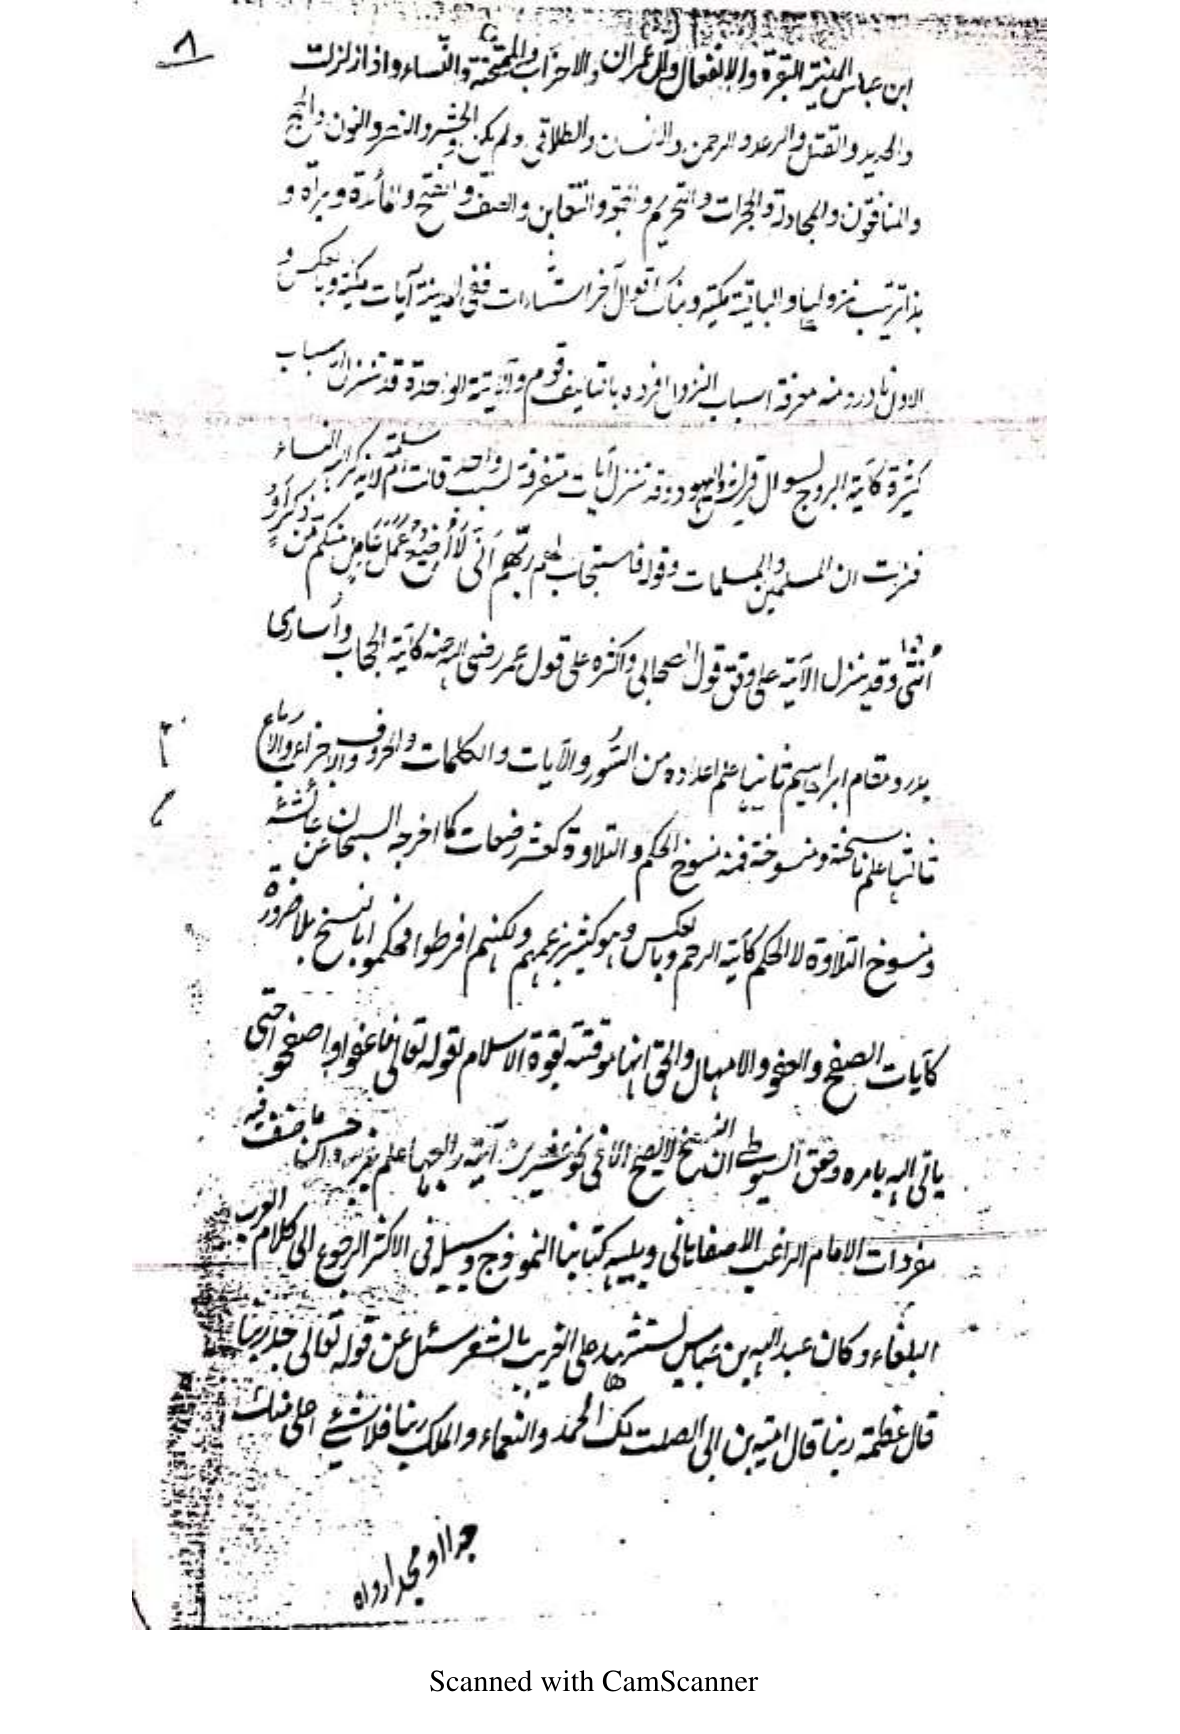 ٨
ابن عباس المدنية البقرة والانفعال وآل عمران والاحزاب والممتحنة والنساء واذا زلزلت
والحديد والقتل والرعد والرحمن والانسان والطلاق ولم يكن والحشر والنصر والنون والحج
والمنافقون والمجادلة والحجرات والتحريم والتغابن والصف والفتح والمائدة وبراة و
هذا ترتيب نزولها والباقية مكية وهناك اقوال آخر استثناءات ففى المدينة آيات مكية وبالعكس و
الاول نادر ومنه معرفة اسباب النزول افرده بالتاليف قوم والآية الواحدة قد تنزل لاسباب
كثيرة كآية الروح لسوال قريش واليهود وقد تنزل آيات متفرقة لسبب واحد قالت ام سلمة لا يذكر النساء
فنزلت ان المسلمين والمسلمات وقوله فاستجاب لهم ربهم أنى لا أضيع عمل عامل منكم من ذكر أو
أنثى وقد ينزل الآية على وفق قول الصحابى واكثره على قول عمر رضى الله عنه كآية الحجاب وأسارى
بدر ومقام ابراهيم ثانيها علم اعداده من السور والآيات والكلمات والحروف والاجزاء والارباع
ثالثها علم ناسخة ومنسوخة فمنه نسوخ الحكم والتلاوة كعشر رضعات كما اخرجه الشيخان عن عائشة
ونسوخ التلاوة لا الحكم كآية الرجم وبالعكس وهو كثير بزعمهم ولكنهم افرطوا فحكموا بالنسخ بلا ضرورة
كآيات الصفح والعفو والامهال والحق انها موقتة بقوة الاسلام لقوله تعالى فاعفوا واصفحوا حتى
ياتى الله بامره وحقق السيوطى ان النسخ لا يصح الا فى نحو عشرين آية رابعها علم غريبه واحسن ما صنف فيه
مفردات الامام الراغب الاصفاهانى ويليه كتابنا النموذج وسبيله فى الاكثر الرجوع الى كلام العرب
البلغاء وكان عبد الله بن عباس يستشهد على الغريب بالشعر سئل عن قوله تعالى جد ربنا
قال عظمة ربنا قال امية بن ابى الصلت لك الحمد والنعماء والملك ربنا فلا شئ اعلى منك
جدا او مجدا رواه
Scanned with CamScanner